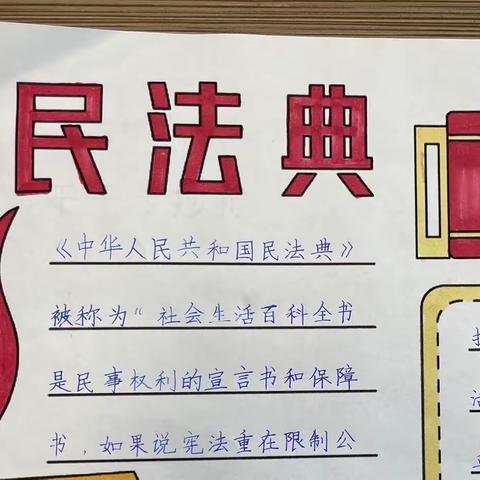 民法典
《中华人民共和国民法典》
被称为“社会生活百科全书
是民事权利的宣言书和保障
书，如果说宪法重在限制公